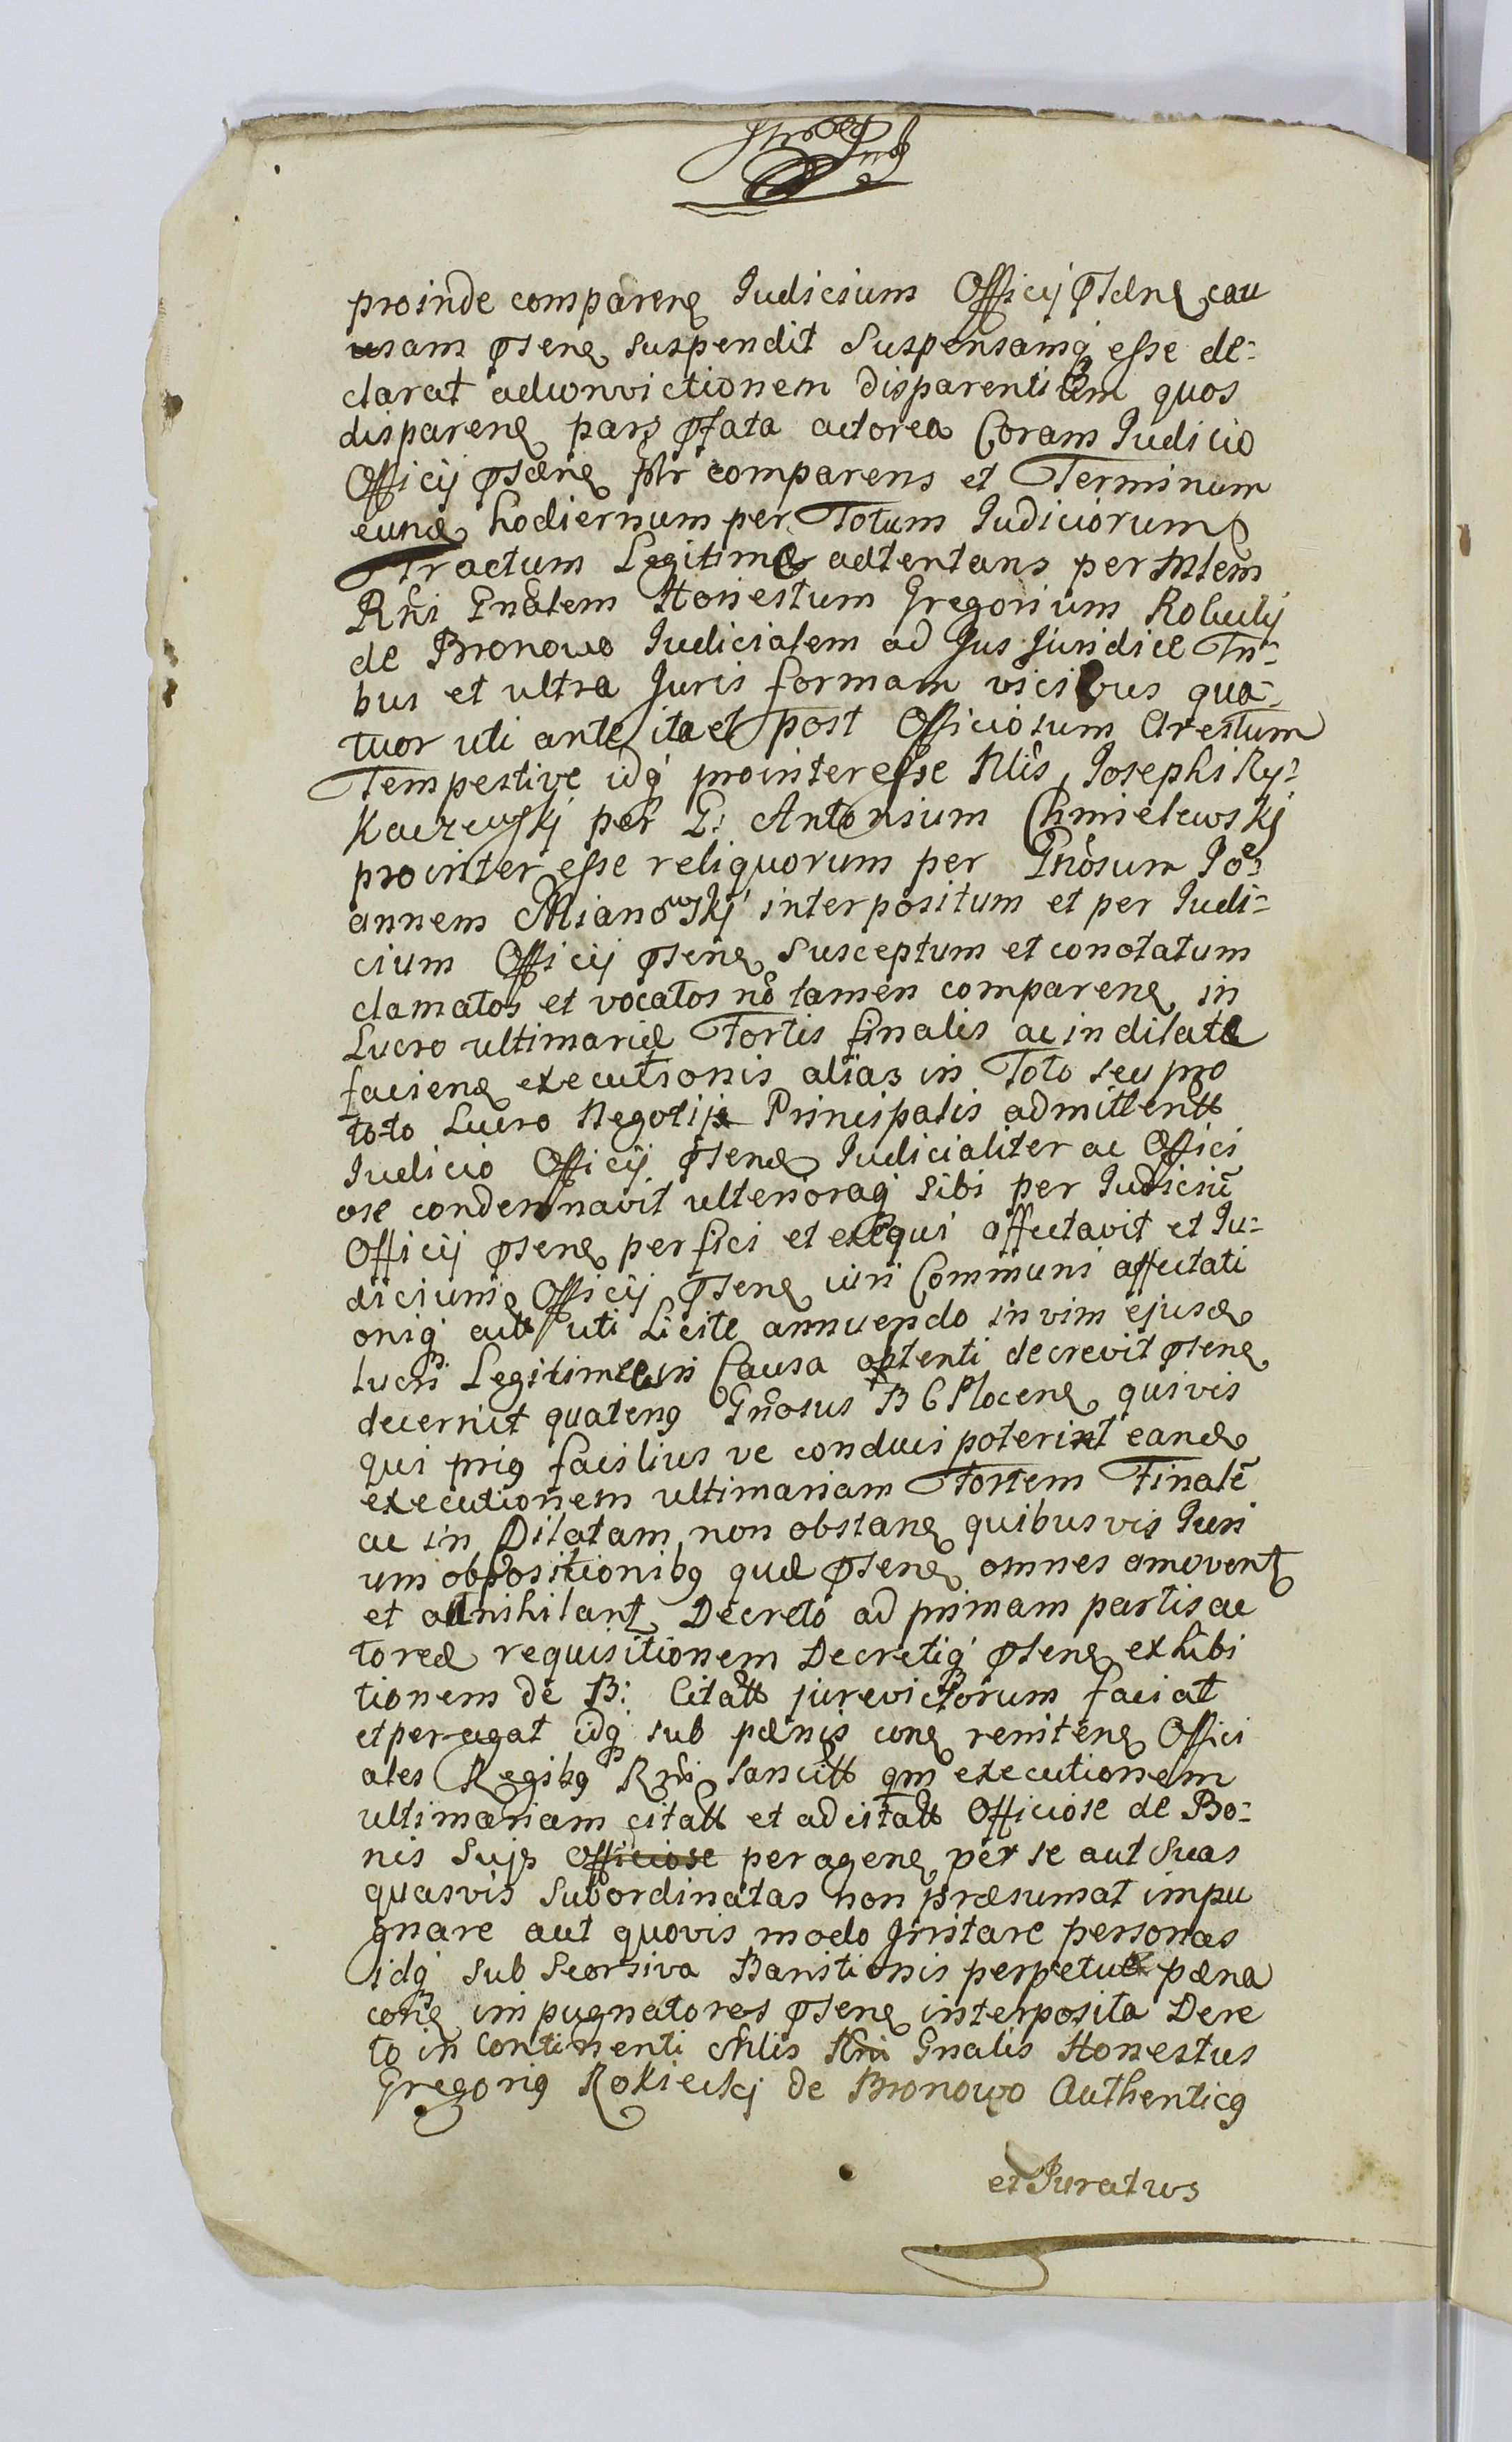 proinde comparen Judicium Officij pnsen cau
usam pnsen suspendit suspensamq esse de:
clarat adconvictionem disparentium quos
disparen pars pfata actorea Coram Judicio
Officij pnsen pltr comparens et Terminum
eund hodiernum per Totum Judiciorum
Tractum Legitime adtentans per Mlem
Rni Gnalem Honestum Gregorium
de Bronowo Judicialem ad Jus Juridice Tri:
bus et ultra Juris formam vicibus qua:
tuor uti ante ita et post Officiosum Arestum
Tempestive idq prointeresse Mlis Josephi Ry:
Kaczewskj per G: Antonium Chmielewskj
prointer esse reliquorum per Gnosum Jo:
annem Mianowskj interpositum et per Judi:
cium Officij pnsen susceptum et conotatum
clamatos et vocatos no tamen comparen in
Lucro ultimariæ Fortis finalis ac indilatæ
facien executionis alias in Toto seu pro
toto Lucro Negotij Principalis admittentt
Judicio Officij pnsen Judicialiter ac Offici
ose condemnavit ulterioraq sibi per Judiciu
Officij pnsen perfici et exequi affectavit et Ju:
diciumq Officij pnsen juri Communi affectati
oniq actt uti Licite annuendo in vim ejusd
lucri Legitime in Causa optenti decrevit pnsen
decernit quateng Gnosus B C Plocen quivis
qui prig facilius ve conduci poterint eand
executionem ultimariam Fortem Finale
ac in Dilatam non obstan quibusvis Juri
um oppositionibg quæ pnsen omnes amovent
et adnihilant Decreto ad primam partis ac
toreæ requisitionem Decretiq pnsen exhibi
tionem de B: Citatt jurevictorum faciat
et peragat idq sub pænis con reniten Offici
ales Legibg Rni Sancitt qm executionem
ultimariam citatt et adcitatt Officiose de Bo:
nis Sujs Officiose peragen per se aut suas
quasvis subordinatas non præsumat impu
gnare aut quovis modo Irritare personas
idq sub Seorsiva Banitionis perpetuæ pæna
con impugnatores pnsen interposita Decre
to in Continenti Mlis Rni Gnalis Honestus
Gregorig Rokieckj de Bronowo Authenticg
et Juratus